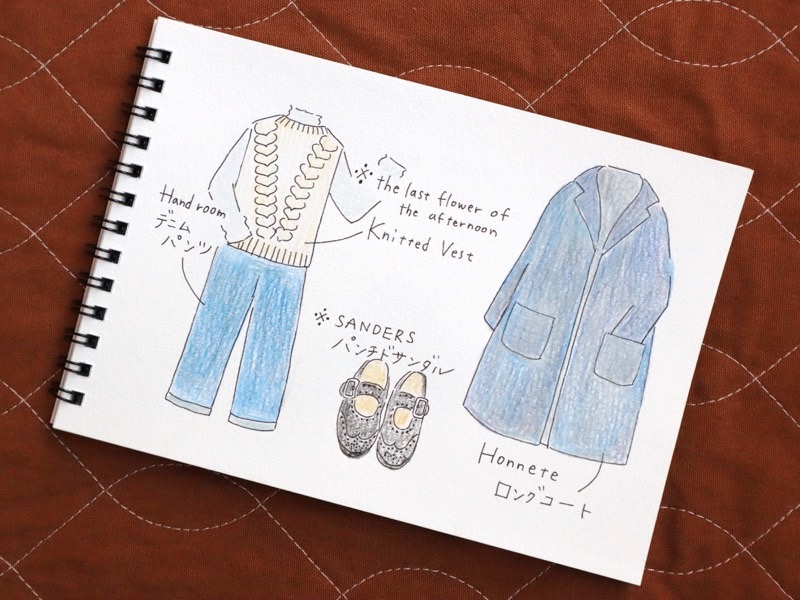 Hand room
デニム
パンツ
※ the last flower of
the afternoon
Knitted Vest
※ SANDERS
パンチドサンダル
Honnete
ロングコート